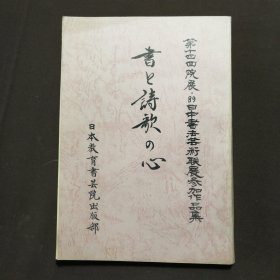 第十四回院展·89日中書法芸術聯展参加作品集
書と詩歌の心
日本教育書芸院出版部